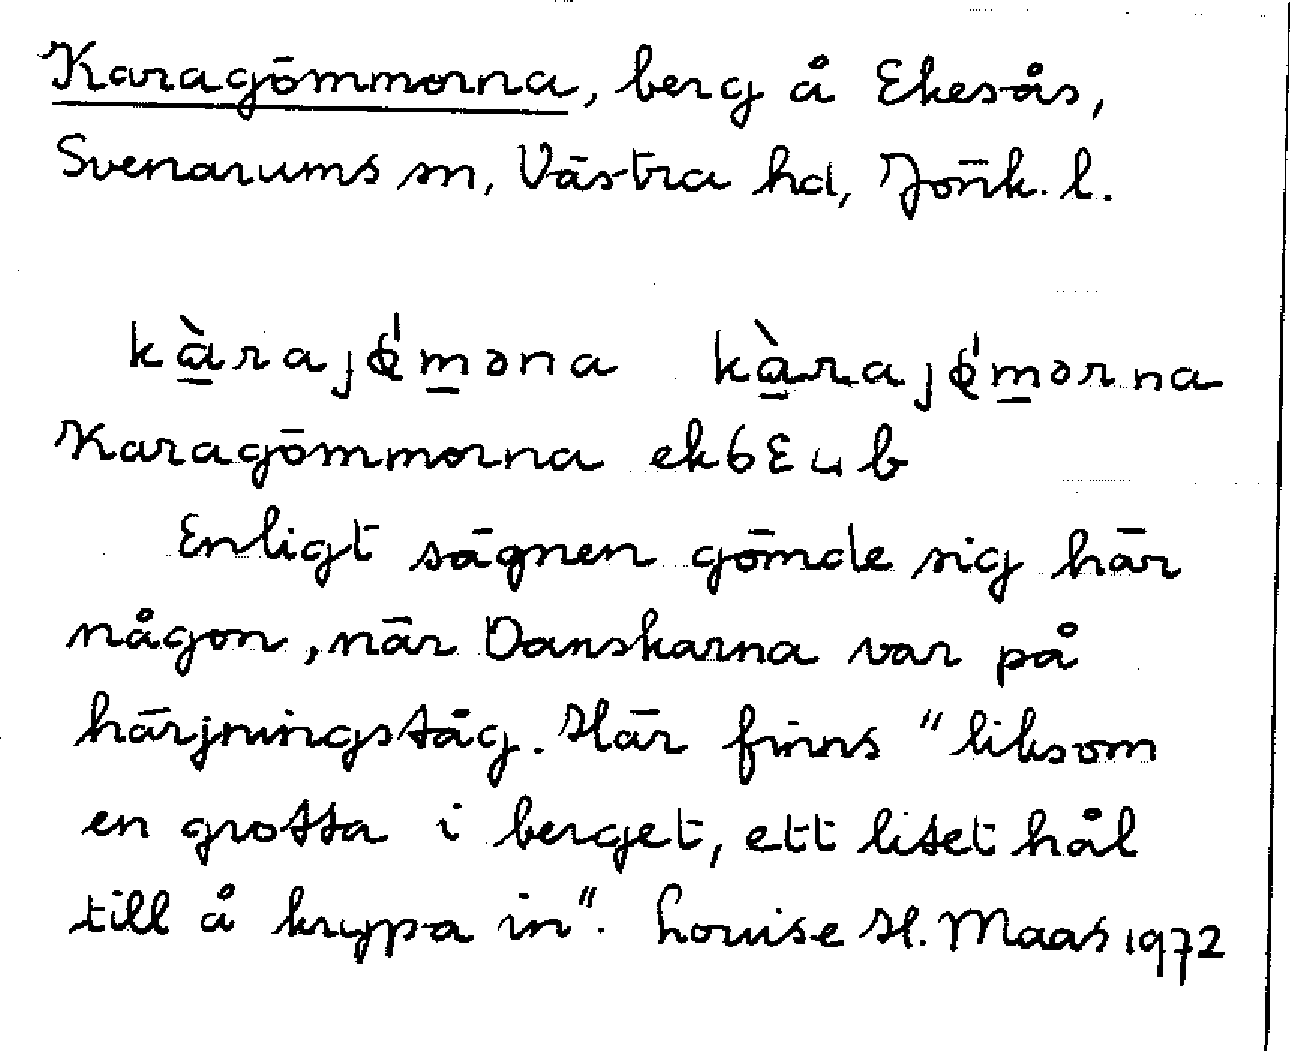 Karagömmorna, berg å Ekesås,
Svenarums sn, Västra hd, Jönk. l.
kàrajǿməna kàrajǿmərna
Karagömmorna ek6E4b
Enligt sägnen gömde sig här
någon, när Danskarna var på
härjningståg. Här finns "liksom
en grotta i berget, ett litet hål
till å krypa in". Louise H. Maas 1972